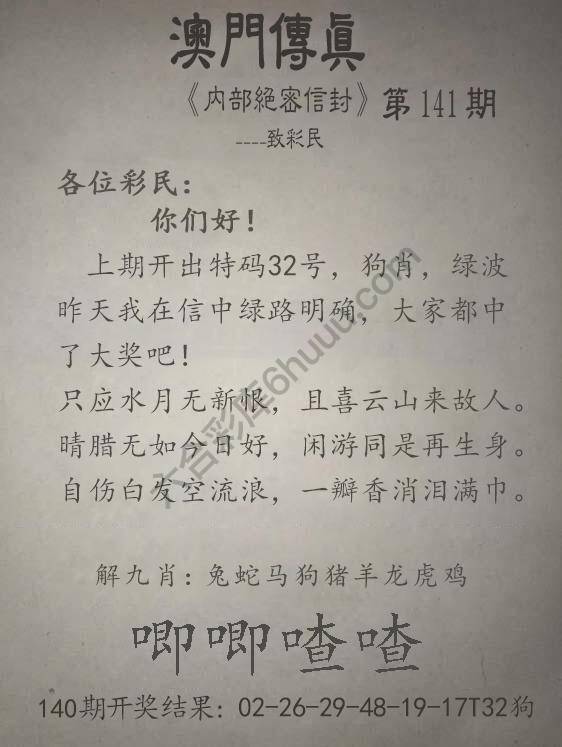 澳門傳真
《内部絕密信封》第141期
----致彩民
各位彩民：
你们好！
上期开出特码32号，狗肖，绿波
昨天我在信中绿路明确，大家都中
了大奖吧！
只应水月无新恨，且喜云山来故人。
晴腊无如今日好，闲游同是再生身。
自伤白发空流浪，一瓣香消泪满巾。
解九肖：兔蛇马狗猪羊龙虎鸡
唧唧喳喳
140期开奖结果：02-26-29-48-19-17T32狗
六合彩库6huuu.com